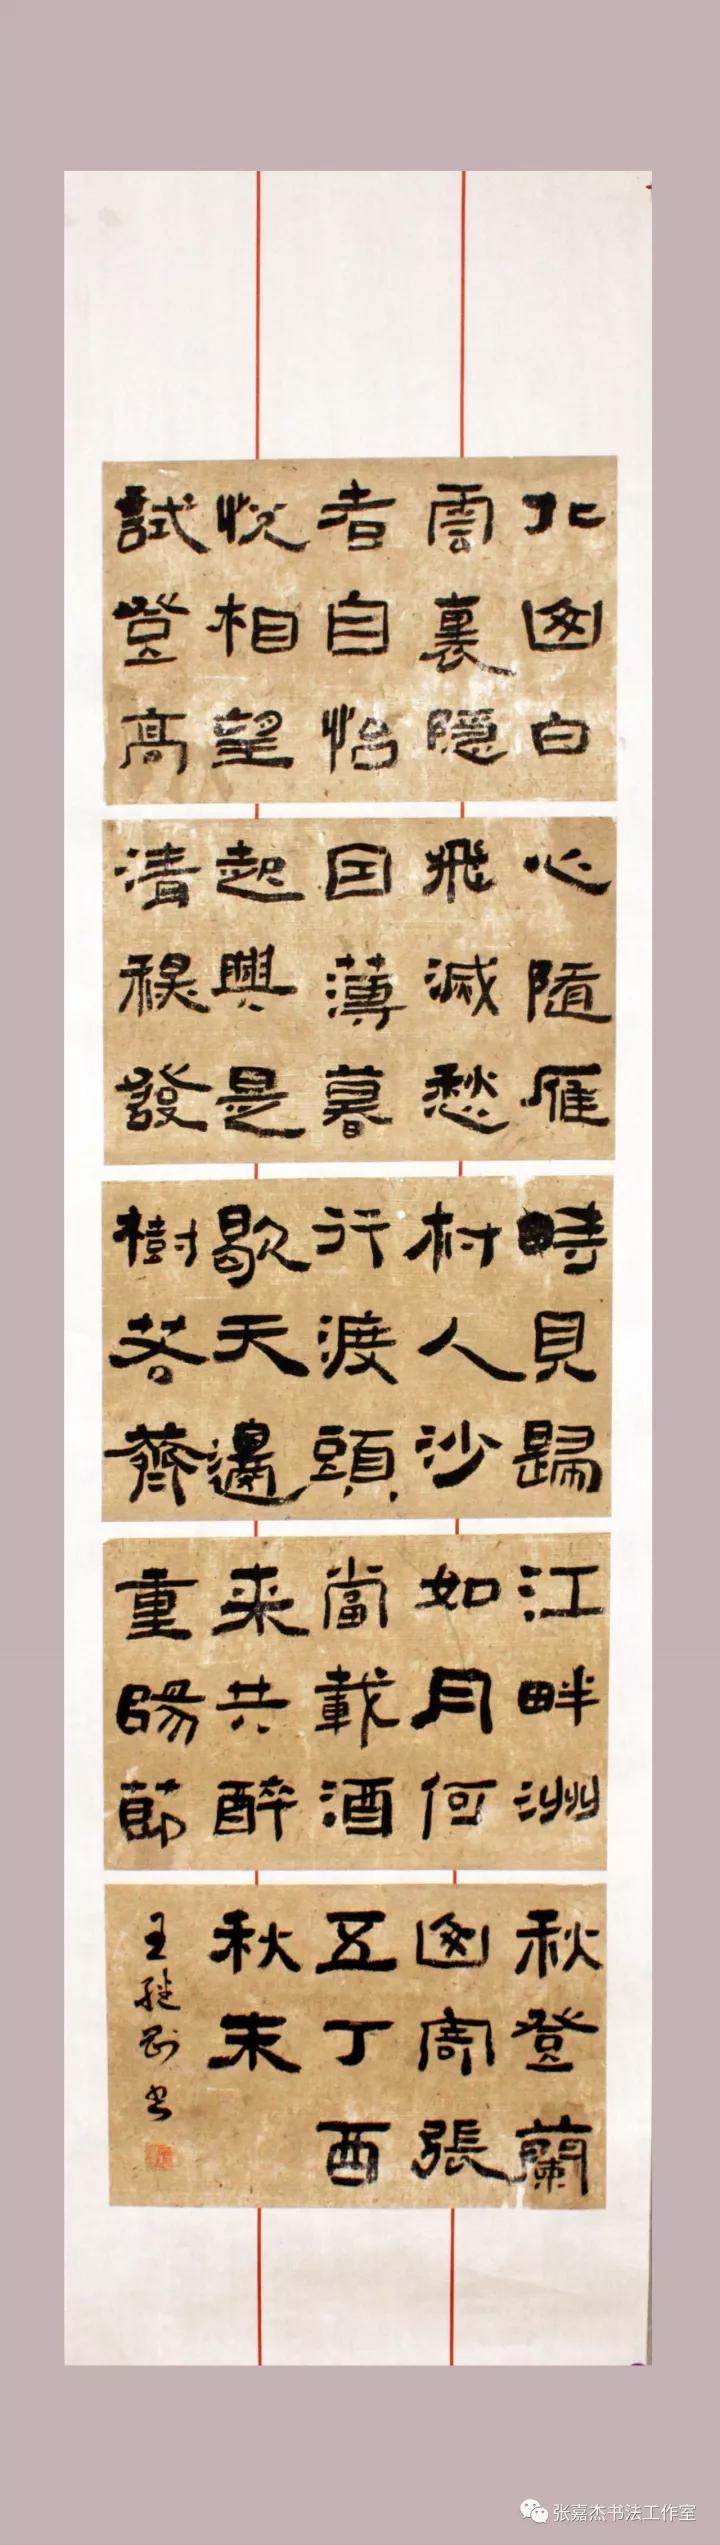 北山白
雲裏隱
者自怡
悅相望
試登高
心隨雁
飛滅愁
因薄暮
起興是
清秋發
時見歸
村人沙
行渡頭
歇天邊
樹若薺
江畔洲
如月何
當載酒
來共醉
重陽節
秋登蘭
山寄張
五丁酉
秋末
王继刚书
张嘉杰书法工作室